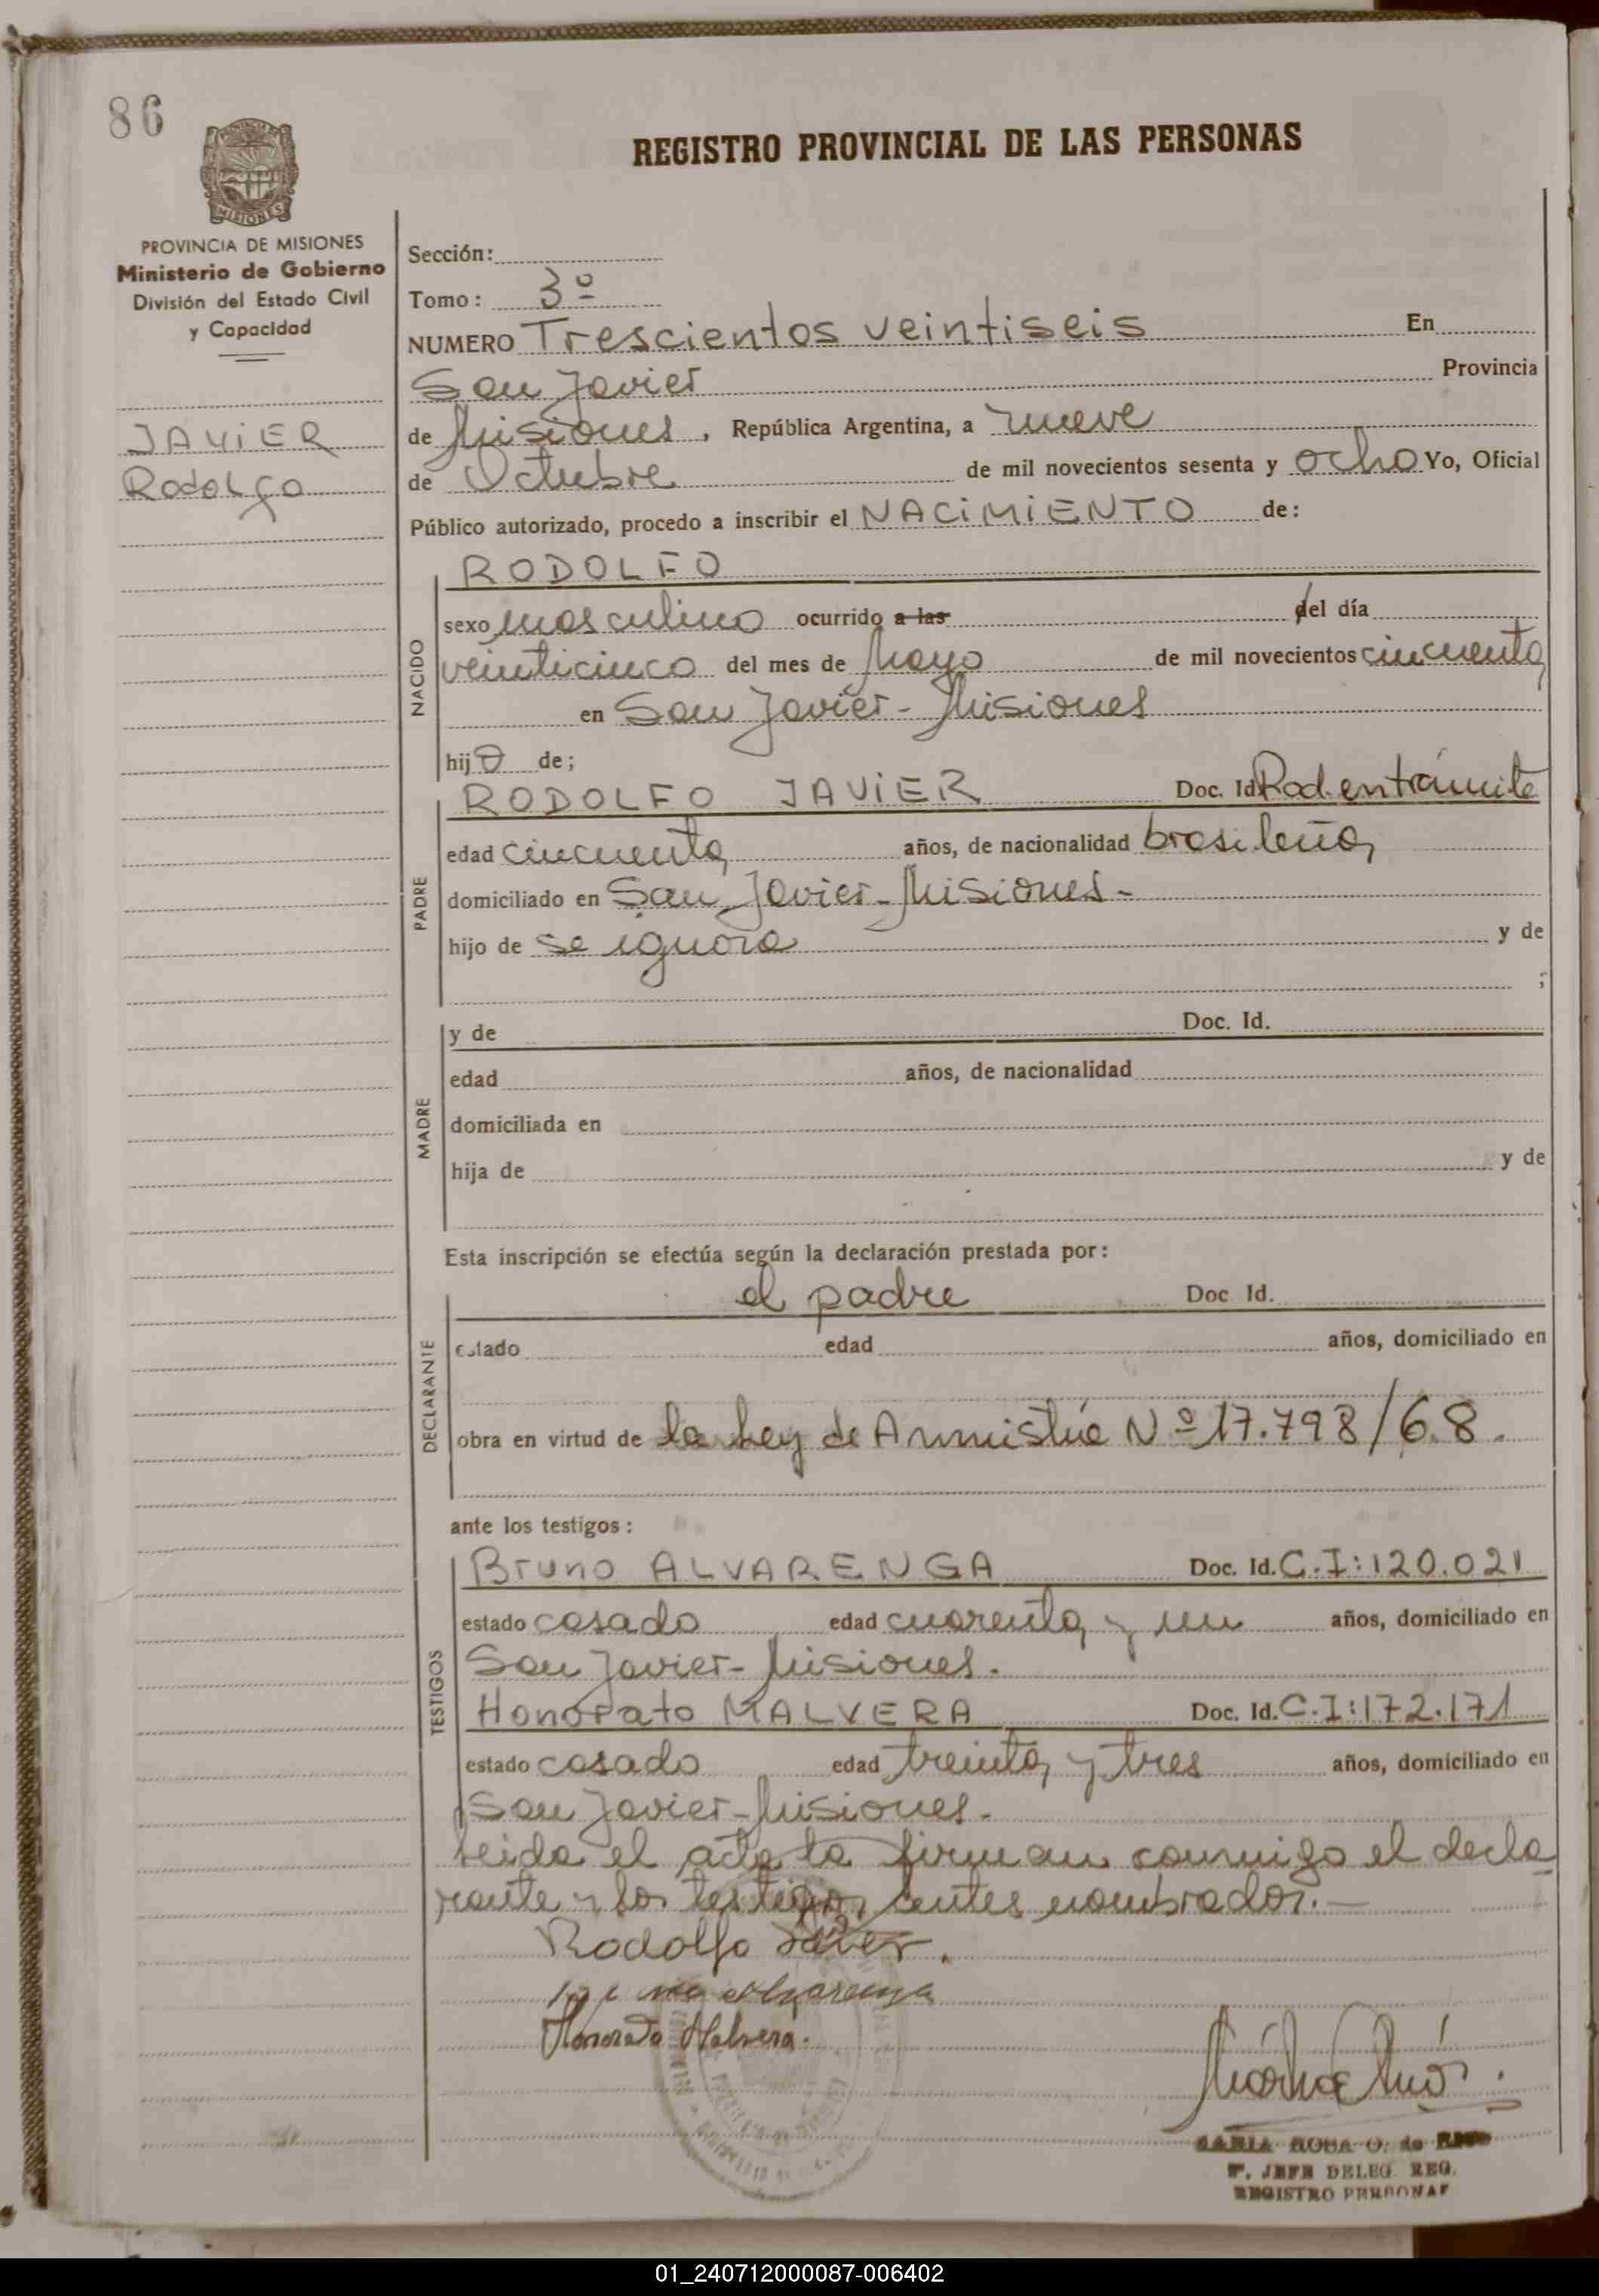 86
REGISTRO PROVINCIAL DE LAS PERSONAS
MISIONES
PROVINCIA DE MISIONES
Ministerio de Gobierno
División del Estado Civil
y Capacidad
JAVIER
Rodolfo
Sección:
Tomo: 3º
NUMERO Trescientos veintiseis En
San Javier Provincia
de Misiones, República Argentina, a nueve
de Octubre de mil novecientos sesenta y ocho Yo, Oficial
Público autorizado, procedo a inscribir el NACIMIENTO de:
NACIDO
RODOLFO
sexo masculino ocurrido a las del día
veinticinco del mes de Mayo de mil novecientos cincuenta
en San Javier - Misiones
hijo de;
PADRE
RODOLFO JAVIER Doc. Id Rad. en trámite
edad cincuenta años, de nacionalidad brasileña
domiciliado en San Javier - Misiones -
hijo de se ignora y de
;
MADRE
y de Doc. Id.
edad años, de nacionalidad
domiciliada en
hija de y de
Esta inscripción se efectúa según la declaración prestada por:
DECLARANTE
el padre Doc Id.
estado edad años, domiciliado en
obra en virtud de la Ley de Amnistía Nº 17.798/68.
ante los testigos:
TESTIGOS
Bruno ALVARENGA Doc. Id. C.I: 120.021
estado casado edad cuarenta y un años, domiciliado en
San Javier - Misiones.
Honorato MALVERA Doc. Id. C.I: 172.171
estado casado edad treinta y tres años, domiciliado en
San Javier - Misiones.
Leida el acta la firman conmigo el decla
rante y los testigos antes nombrados. —
Rodolfo Javier.
Alvarenga
Honorato Malvera.
MARIA ROSA O. de
JEFE DELEG. REG.
REGISTRO PERSONAS
01_240712000087-006402